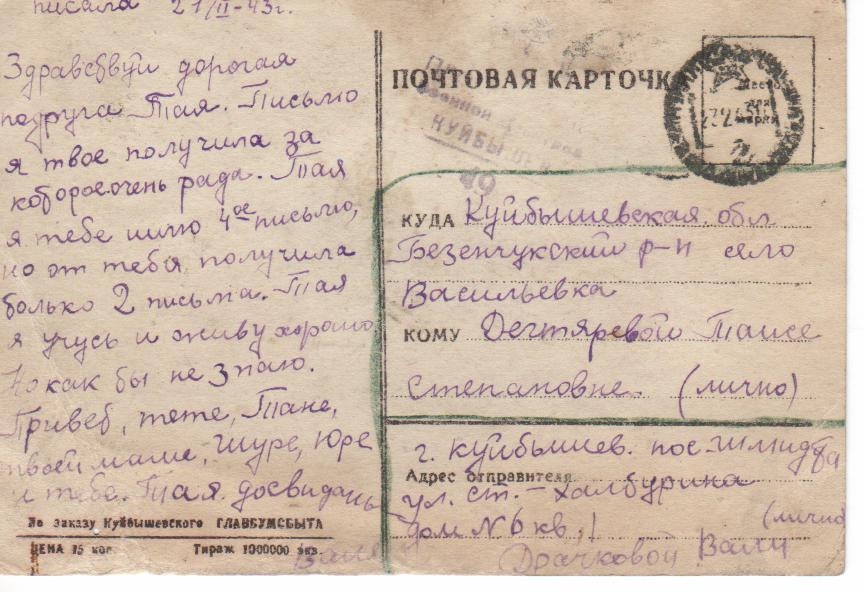 писала 21/II-43г.
Здравствуй дорогая
подруга Тая. Письмо
я твое получила за
которое очень рада. Тая
я тебе шлю 4ое письмо,
но от тебя получила
только 2 письма. Тая
я учусь и живу хорошо
Но как бы не знаю.
Привет, тете, Тане,
твоей маме, Шуре, Юре
и тебе. Тая. досвидань
По заказу Куйбышевского ГЛАВБУМСБЫТА
ЦЕНА 15 коп. Тираж 1000000 экз.
Валя
ПОЧТОВАЯ КАРТОЧКА
Место
для
марки
военной
КУЙБЫШЕВ
49
КУДА Куйбышевская обл
Безенчукский р-н село
Васильевка
КОМУ Дегтяревой Таисе
Степановне. (лично)
г. Куйбышев. пос. Шмидта
Адрес отправителя
ул. ст. - Халтурина
дом № 6 кв. 1 (лично)
Драчковой Вали